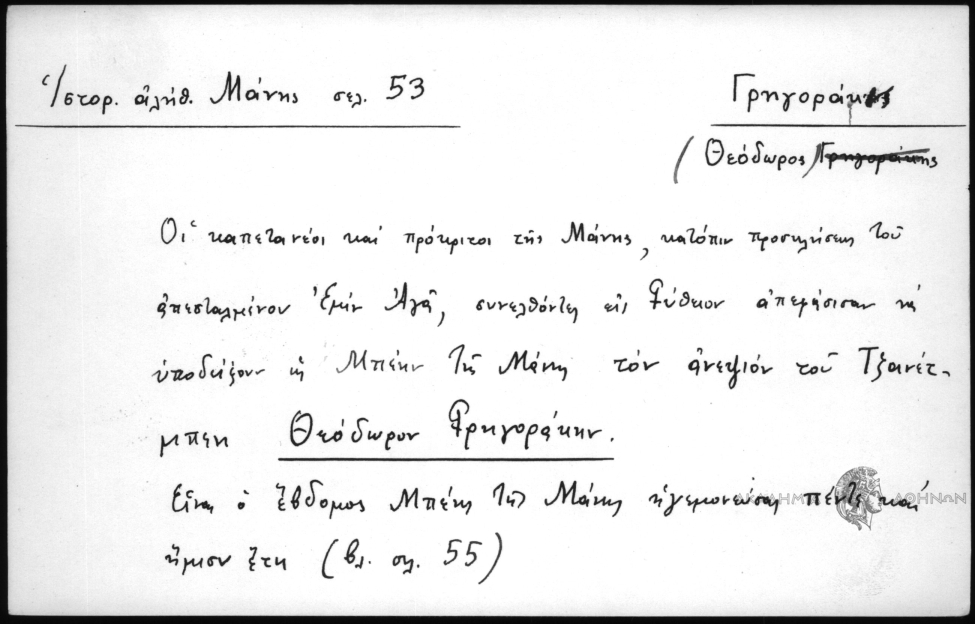 Ἱστορ. ἀλήθ. Μάνης σελ. 53
Γρηγοράκης
(Θεόδωρος) Γρηγοράκης
Οἱ καπετανέοι καί πρόκριτοι τῆς Μάνης, κατόπιν προσκλήσεως τοῦ
ἀπεσταλμένου Ἐμίν Ἀγᾶ, συνελθόντες εἰς Γύθειον ἀπεφάσισαν νά
ὑποδείξουν ὡς Μπέην τῆς Μάνης τόν ἀνεψιόν τοῦ Τζανέτ-
μπεη Θεόδωρον Γρηγοράκην.
Εἶναι ὁ ἕβδομος Μπέης τῆς Μάνης ἡγεμονεύσας πέντε καί
ἥμισυ ἔτη (βλ. σελ. 55)
ΑΚΑΔΗΜΙΑ ΑΘΗΝΩΝ